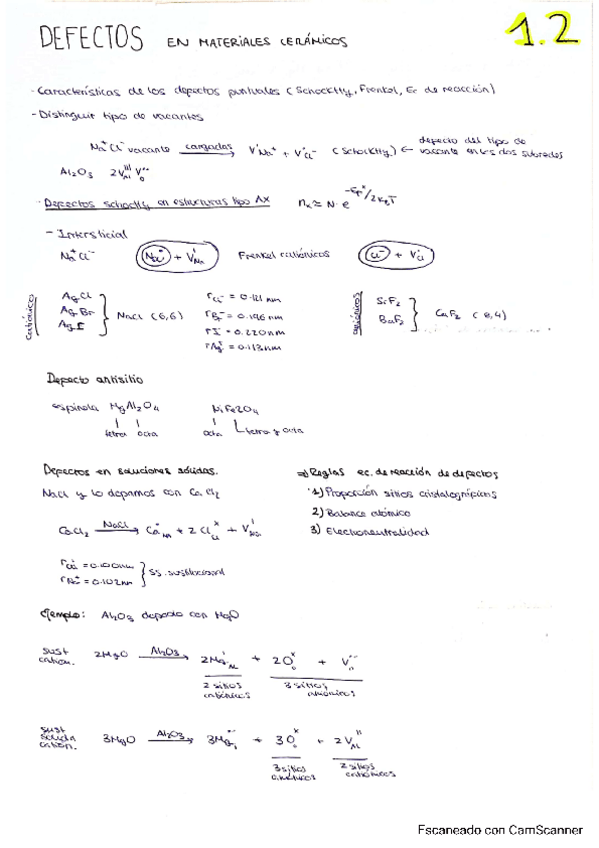 DEFECTOS EN MATERIALES CERÁMICOS
1.2
- Características de los defectos puntuales (Schocktty, Frenkel, Ec de reacción)
- Distinguir tipo de vacantes
Na⁺Cl⁻ vacante cargadas → V'Na⁺ + V˙Cl⁻ (Schocktty) ← defecto del tipo de vacante en las dos subredes
Al₂O₃ 2V'''Al V¨O
· Defectos schottky en estructuras tipo AX
- Intersticial
Na⁺Cl⁻ + V'Na Frenkel catiónicos Cl⁻ + V˙Cl
Catiónicos
AgCl
AgBr
AgI
NaCl (6,6)
rCl⁻ = 0.181 nm
rBr⁻ = 0.196 nm
rI⁻ = 0.220 nm
rAg⁺ = 0.113 nm
aniónicos
SrF₂
BaF₂
CaF₂ (8,4)
Defecto antisitio
espinela MgAl₂O₄ NiFe₂O₄
tetra octa octa tetra y octa
Defectos en soluciones sólidas.
NaCl y lo dopamos con CaCl₂
CaCl₂ NaCl → Ca˙Na + 2 ClˣCl + V'Na
rCa = 0.100 nm
rNa = 0.102 nm
ss. sustitucional
⇒ Reglas ec. de reacción de defectos
1) Proporción sitios cristalográficos
2) Balance atómico
3) Electroneutralidad
Ejemplo: Al₂O₃ dopado con MgO
sust cation. 2MgO Al₂O₃ → 2Mg'Al + 2Oˣo + V¨o
2 sitios catiónicos
3 sitios aniónicos
sust sólida cation. 3MgO Al₂O₃ → 3Mg¨i + 3Oˣo + 2V'''Al
3 sitios aniónicos
2 sitios catiónicos
Escaneado con CamScanner